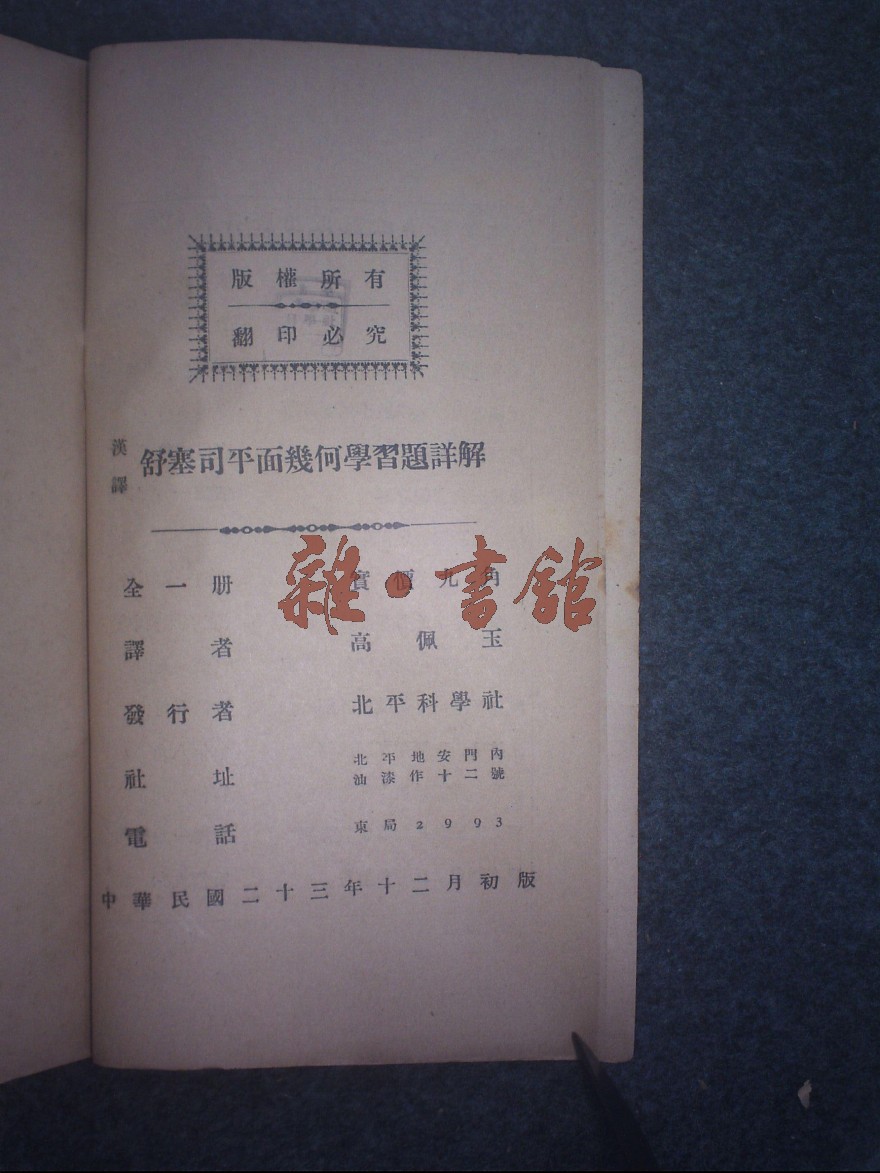 版權所有
翻印必究
漢譯 舒塞司平面幾何學習題詳解
全一册 實價九角
雜·書館
譯者 高佩玉
發行者 北平科學社
社址 北平地安門內
油漆作十二號
電話 東局2993
中華民國二十三年十二月初版